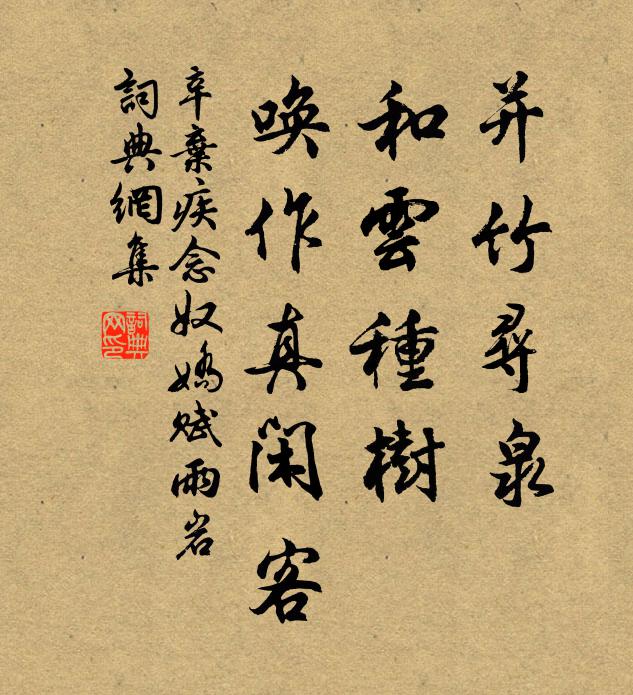 并竹尋泉
和雲種樹
喚作真閑客
辛棄疾念奴嬌賦雨岩
詞典網集
詞典網印